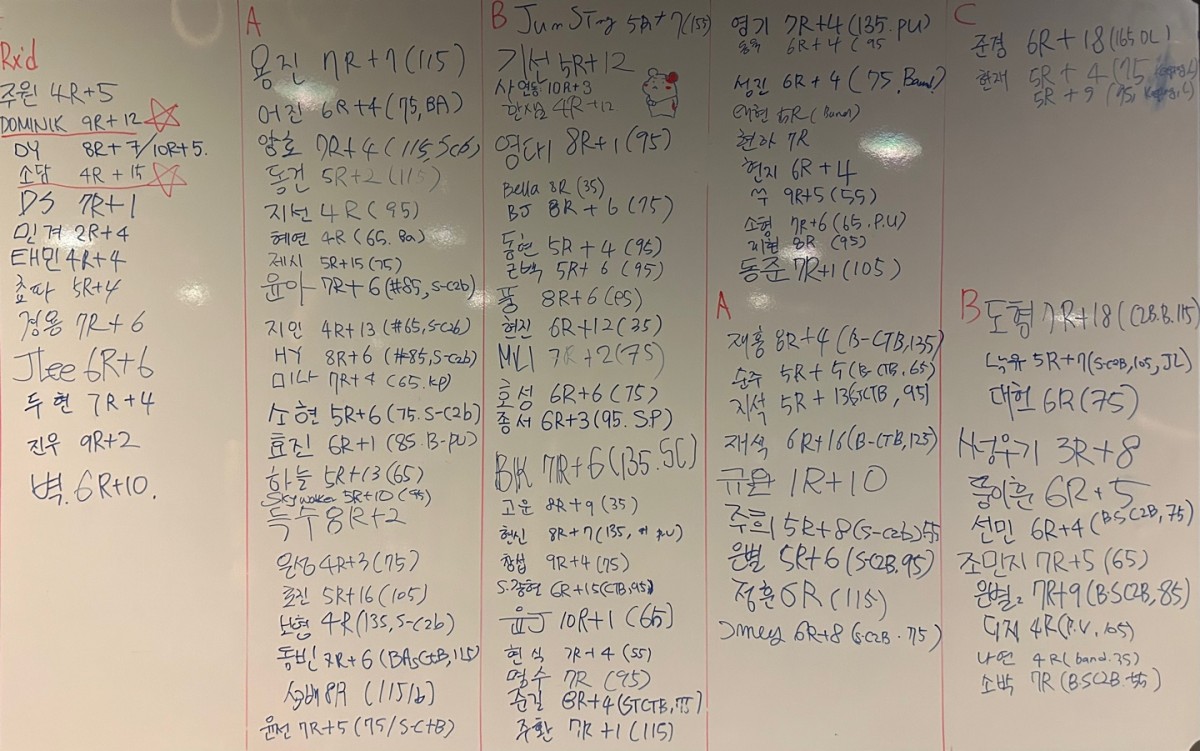 Rxd
주원 4R+5
DOMINIK 9R+12
DY 8R+7/10R+5.
소담 4R+15
DS 7R+1
민겨 2R+4
태민 4R+4
쵸파 5R+4
경용 7R+6
JLee 6R+6
두현 7R+4
진우 9R+2
벽. 6R+10.
A
용진 7R+7(115)
어진 6R+4(75,BA)
양호 7R+4(115,Scb)
동건 5R+2(115)
지선 4R(95)
혜연 4R(65.Ba)
제시 5R+15(75)
윤아 7R+6(#85,S-c2b)
지인 4R+13(#65,S-c2b)
HY 8R+6(#85,S-c2b)
미나 7R+4(65.KP)
소현 5R+6(75.S-C2b)
효진 6R+1(85.B-pu)
하늘 5R+13(65)
Skywalker 5R+10(95)
득수 8R+2
은성 4R+3(75)
효진 5R+16(105)
보현 4R(135,S-c2b)
동빈 7R+6(BAsCtB,115)
성배 8R (115/b)
윤선 7R+5(75/S-CtB)
B JunSTng 5R+7(155)
기선 5R+12
사연동 10R+3
한삼 4R+12
영타1 8R+1(95)
Bella 8R(35)
BJ 8R+6(75)
동현 5R+4(95)
근백 5R+6(95)
풍 8R+6(85)
현진 6R+12(35)
MLI 7R+2(75)
호성 6R+6(75)
종서 6R+3(95.SP)
BK 7R+6(135.SC)
고운 8R+9(35)
현신 8R+7(135, pu)
창섭 9R+4(75)
S.강현 6R+15(CTB,95)
윤J 10R+1(65)
현식 7R+4(55)
명수 7R(95)
준길 8R+4(STCTB,75)
주환 7R+1(115)
영기 7R+4(135.PU)
6R+4(95
성진 6R+4(75.Band)
태현 5R(Band)
현하 7R
현지 6R+4
쑤 9R+5(55)
소형 7R+6(65.P.U)
지원 8R(95)
동준 7R+1(105)
A
재홍 8R+4(B-CTB,135)
순주 5R+5(B-CTB.65)
지석 5R+13(STCTB,95)
재석 6R+16(B-CTB,125)
규윤 1R+10
주희 5R+8(S-c2b)55
은별 5R+6(S-C2B.95)
정훈 6R(115)
Jmey 6R+8(S-C2B.75)
C
준경 6R+18(165DL)
현재 5R+4(75
5R+9(75,
B 도형 7R+18(C2B.B.115)
녹유 5R+7(S-C2B,105,JL)
대헌 6R(75)
사성우기 3R+8
동이훈 6R+5
선민 6R+4(B-SC2B,75)
조민지 7R+5(65)
은별2 7R+9(B-SC2B,85)
디지 4R(P.U,105)
나연 4R(band.35)
소박 7R(B-SC2B.55)